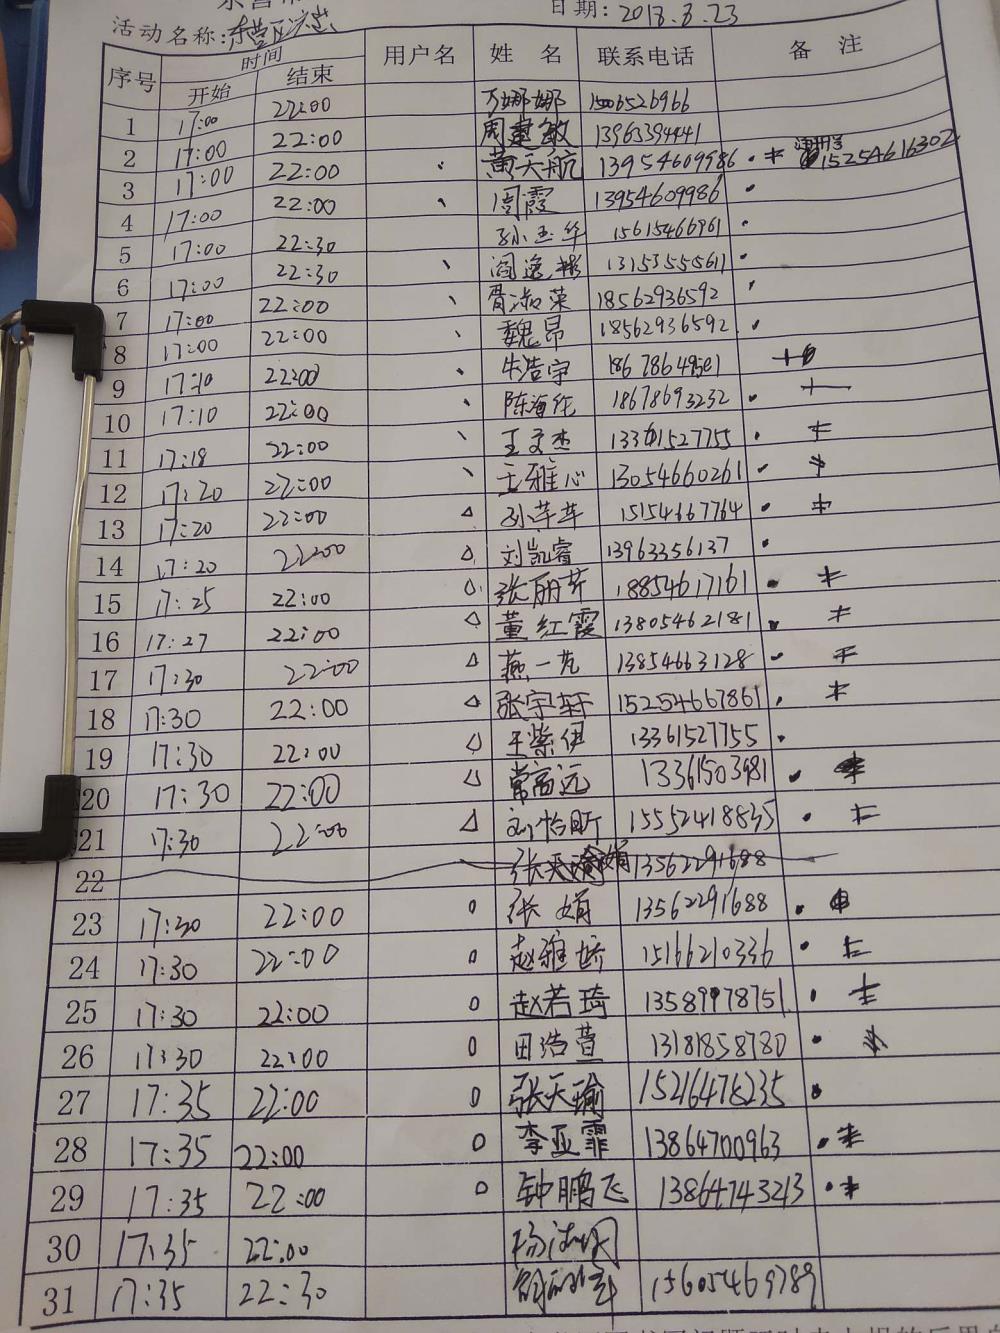 日期: 2018.8.23
活动名称:
序号 时间 用户名 姓 名 联系电话 备 注
开始 结束
1 17:00 22:00 万娜娜 1506526966
2 17:00 22:00 周建敏 13963394441
3 17:00 22:00 黄天航 13954609986 15254616302
4 17:00 22:00 周霞 13954609986
5 17:00 22:30 孙玉华 15615466961
6 17:00 22:30 阎逸彬 13153555611
7 17:00 22:00 胥淑荣 18562936592
8 17:00 22:00 魏昂 18562936592
9 17:10 22:00 牛浩宇
10 17:10 22:00 陈海纯 18678693232
11 17:18 22:00 王文杰 13361527755
12 17:20 22:00 王雅心 13054660261
13 17:20 22:00 孙苹苹 15154667764
14 17:20 22:00 刘凯睿 13963356137
15 17:25 22:00 张丽芹 18854617161
16 17:27 22:00 董红霞 13805462181
17 17:30 22:00 燕一芃 13854663128
18 17:30 22:00 张宇轩 152254667861
19 17:30 22:00 王紫伊 13361527755
20 17:30 22:00 常高远 13361503981
21 17:30 22:00 刘怡昕 15552418835
22 13562291688
23 17:30 22:00 张娟 13562291688
24 17:30 22:00 赵雅娇 15166210336
25 17:30 22:00 赵若琦 13589978751
26 17:30 22:00 田浩萱 13181858780
27 17:35 22:00 张天瑜 15216478235
28 17:35 22:00 李亚霏 13864700963
29 17:35 22:00 钟鹏飞 13864743213
30 17:35 22:00
31 17:35 22:30 15605469789